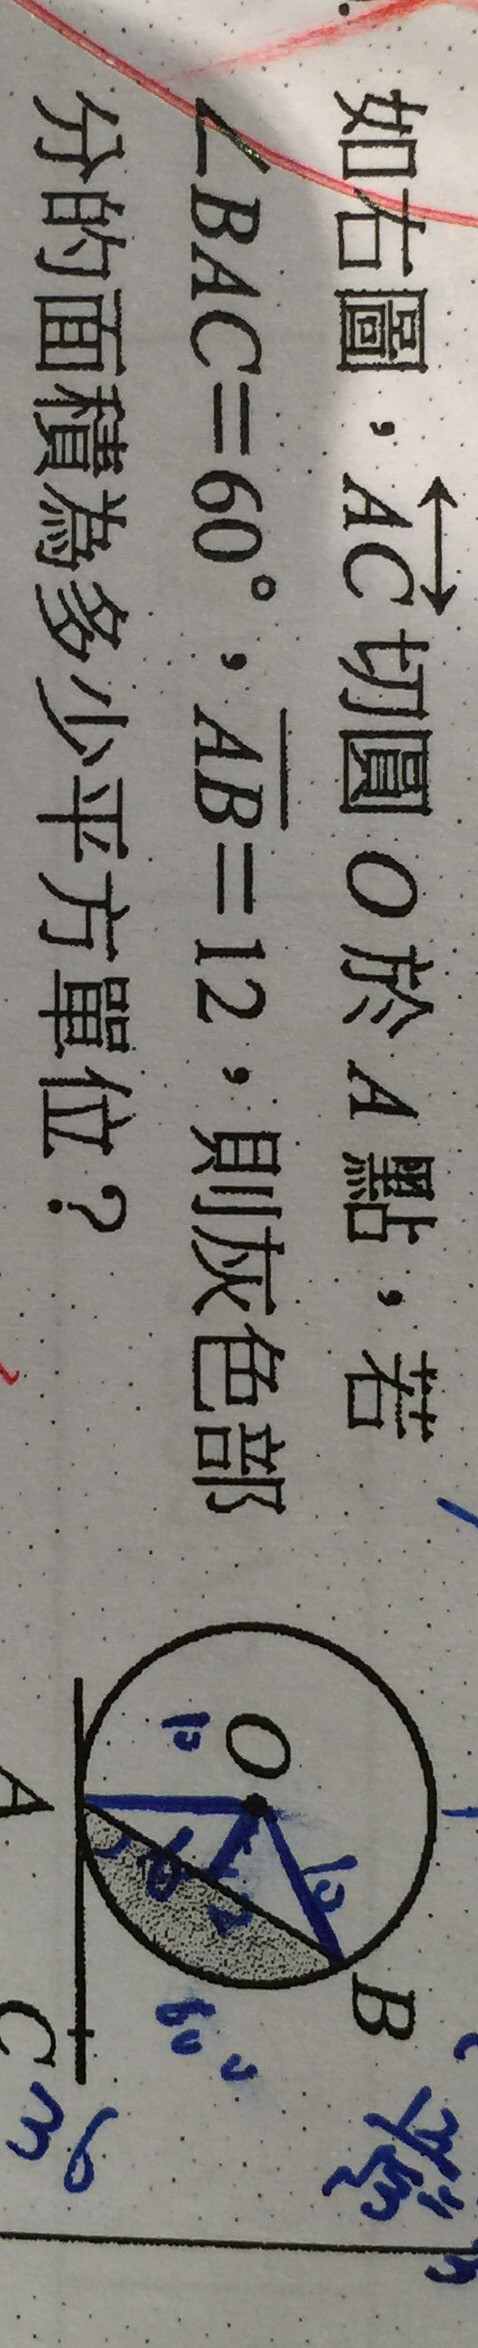 如右圖，AC切圓O於A點，若
∠BAC=60°，AB=12，則灰色部
分的面積為多少平方單位？
O
B
A
C
60°
36